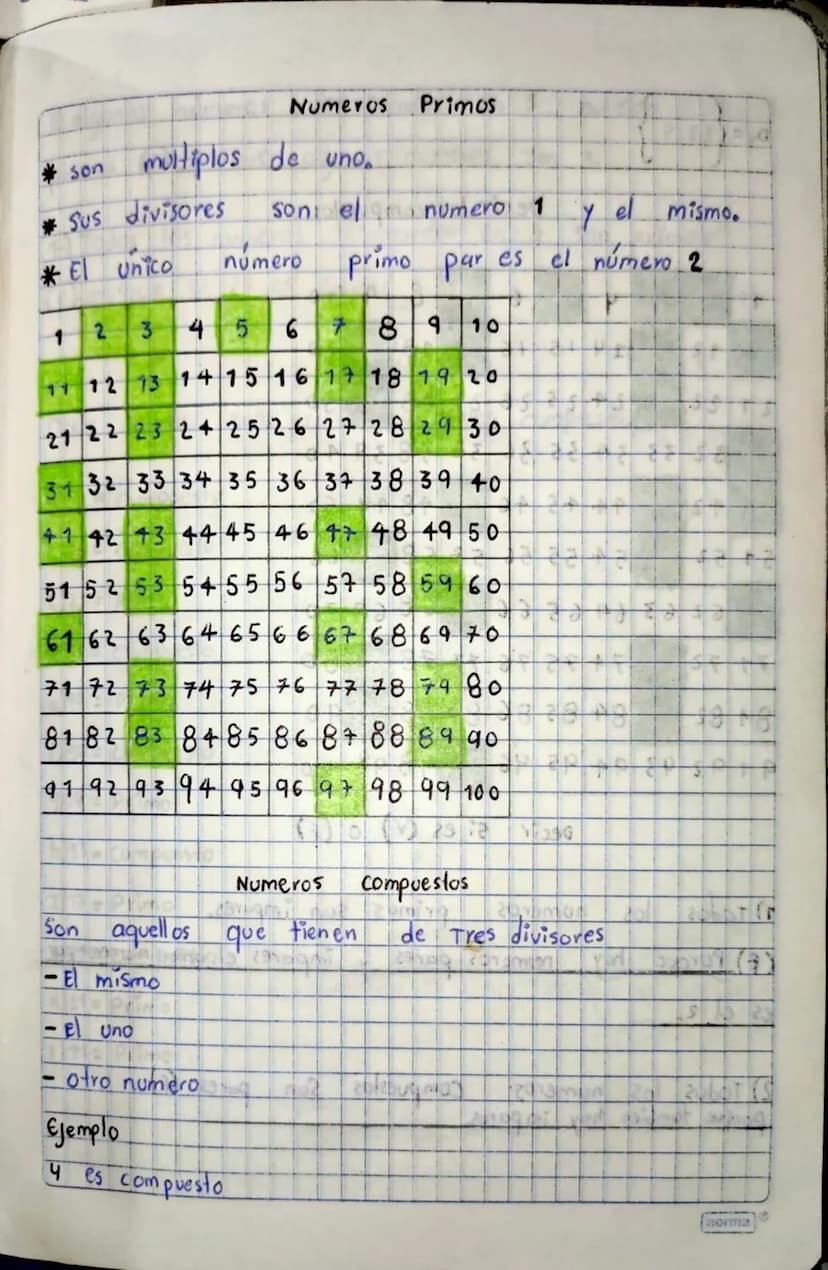 Numeros Primos
* son multiplos de uno.
* sus divisores son el numero 1 y el mismo.
* El único número primo par es el número 2
1 2 3 4 5 6 7 8 9 10
11 12 13 14 15 16 17 18 19 20
21 22 23 24 25 26 27 28 29 30
31 32 33 34 35 36 37 38 39 40
41 42 43 44 45 46 47 48 49 50
51 52 53 54 55 56 57 58 59 60
61 62 63 64 65 66 67 68 69 70
71 72 73 74 75 76 77 78 79 80
81 82 83 84 85 86 87 88 89 90
91 92 93 94 95 96 97 98 99 100
Numeros compuestos
Son aquellos que tienen de Tres divisores
- El mismo
- El uno
- otro numero
Ejemplo
4 es compuesto
norma